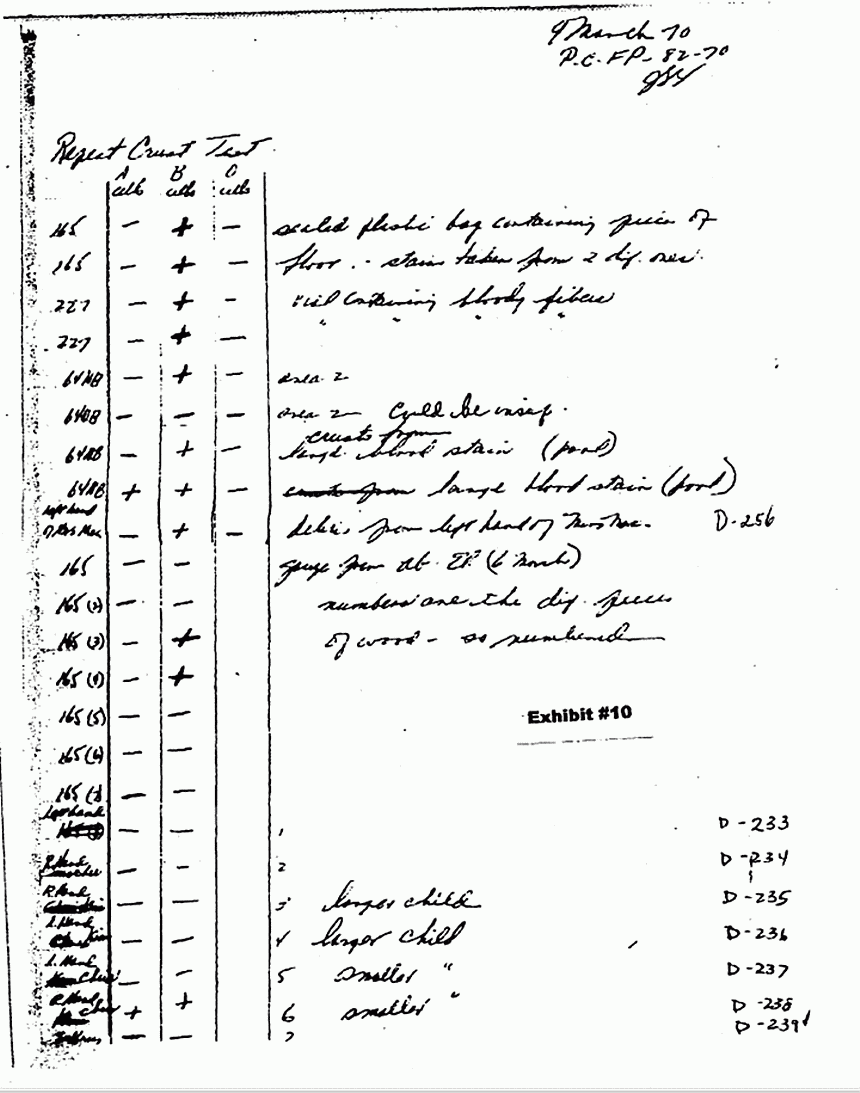 9 March 70
P.C. FP-82-70
Repeat Crust Test
A cells B cells O cells
165 - + - sealed plastic bag containing piece of
165 - + - floor. - stain taken from 2 dif. ones.
227 - + - vial containing bloody fibers
227 - + - " " " "
64HB - + - area 2
64HB - - - area 2 - Could be insuf.
crusts from
64HB - + - large blood stain (pool)
64HB + + - large blood stain (pool)
left hand
of Mrs Mac - + - debris from left hand of Mrs Mac. D-256
165 - - gauge from (6 March)
165 (2) - - numbers are the dif. pieces
165 (3) - + of wood - so numbered
165 (4) - +
165 (5) - -
Exhibit #10
165 (6) - -
165 (7) - -
left hand
- - 1 D-233
R. Hand
- - 2 D-234
R. Hand
- - 3 larger child D-235
L. Hand
- - 4 larger child D-236
L. Hand
- - 5 smaller " D-237
R. Hand
+ + 6 smaller " D-238
- - 7 D-239